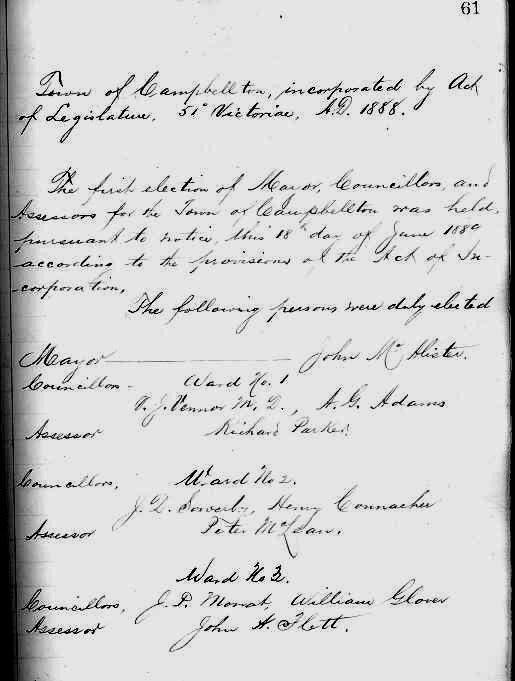 61
Town of Campbellton, incorporated by Act
of Legislature, 51° Victoriae, A.D. 1888.
The first election of Mayor, Councillors, and
Assessors for the Town of Campbellton was held,
pursuant to notice, this 18th day of June 1889
according to the provisions of the Act of In-
corporation.
The following persons were duly elected
Mayor John McAlister.
Councillors - Ward No. 1
V. J. Vennor M.D., A. G. Adams
Assessor Richard Parker.
Councillors, Ward No 2.
J. D. Sowerby, Henry Connacher
Assessor Peter McLean.
Ward No 3.
Councillors, J. P. Mowat, William Glover
Assessor John A. Flett.